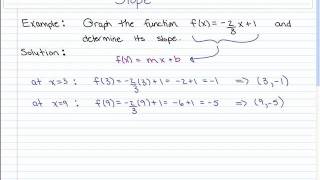 Slope
Example: Graph the function f(x) = -2/3 x + 1 and
determine its slope.
Solution:
f(x) = mx + b
at x=3 : f(3) = -2/3 (3) + 1 = -2+1 = -1 => (3,-1)
at x=9 : f(9) = -2/3 (9) + 1 = -6+1 = -5 => (9,-5)